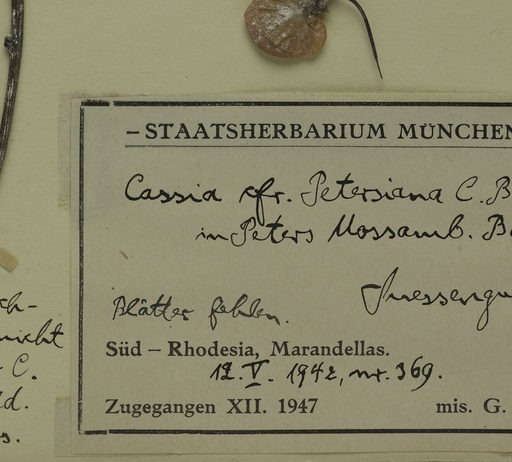 – STAATSHERBARIUM MÜNCHEN
Cassia cfr. Petersiana C. B
in Peters Mossamb. B
Blätter fehlen.
Süd – Rhodesia, Marandellas.
12. V. 1942, nr. 369.
Zugegangen XII. 1947 mis. G.
ch-
nicht
C.
d.
s.